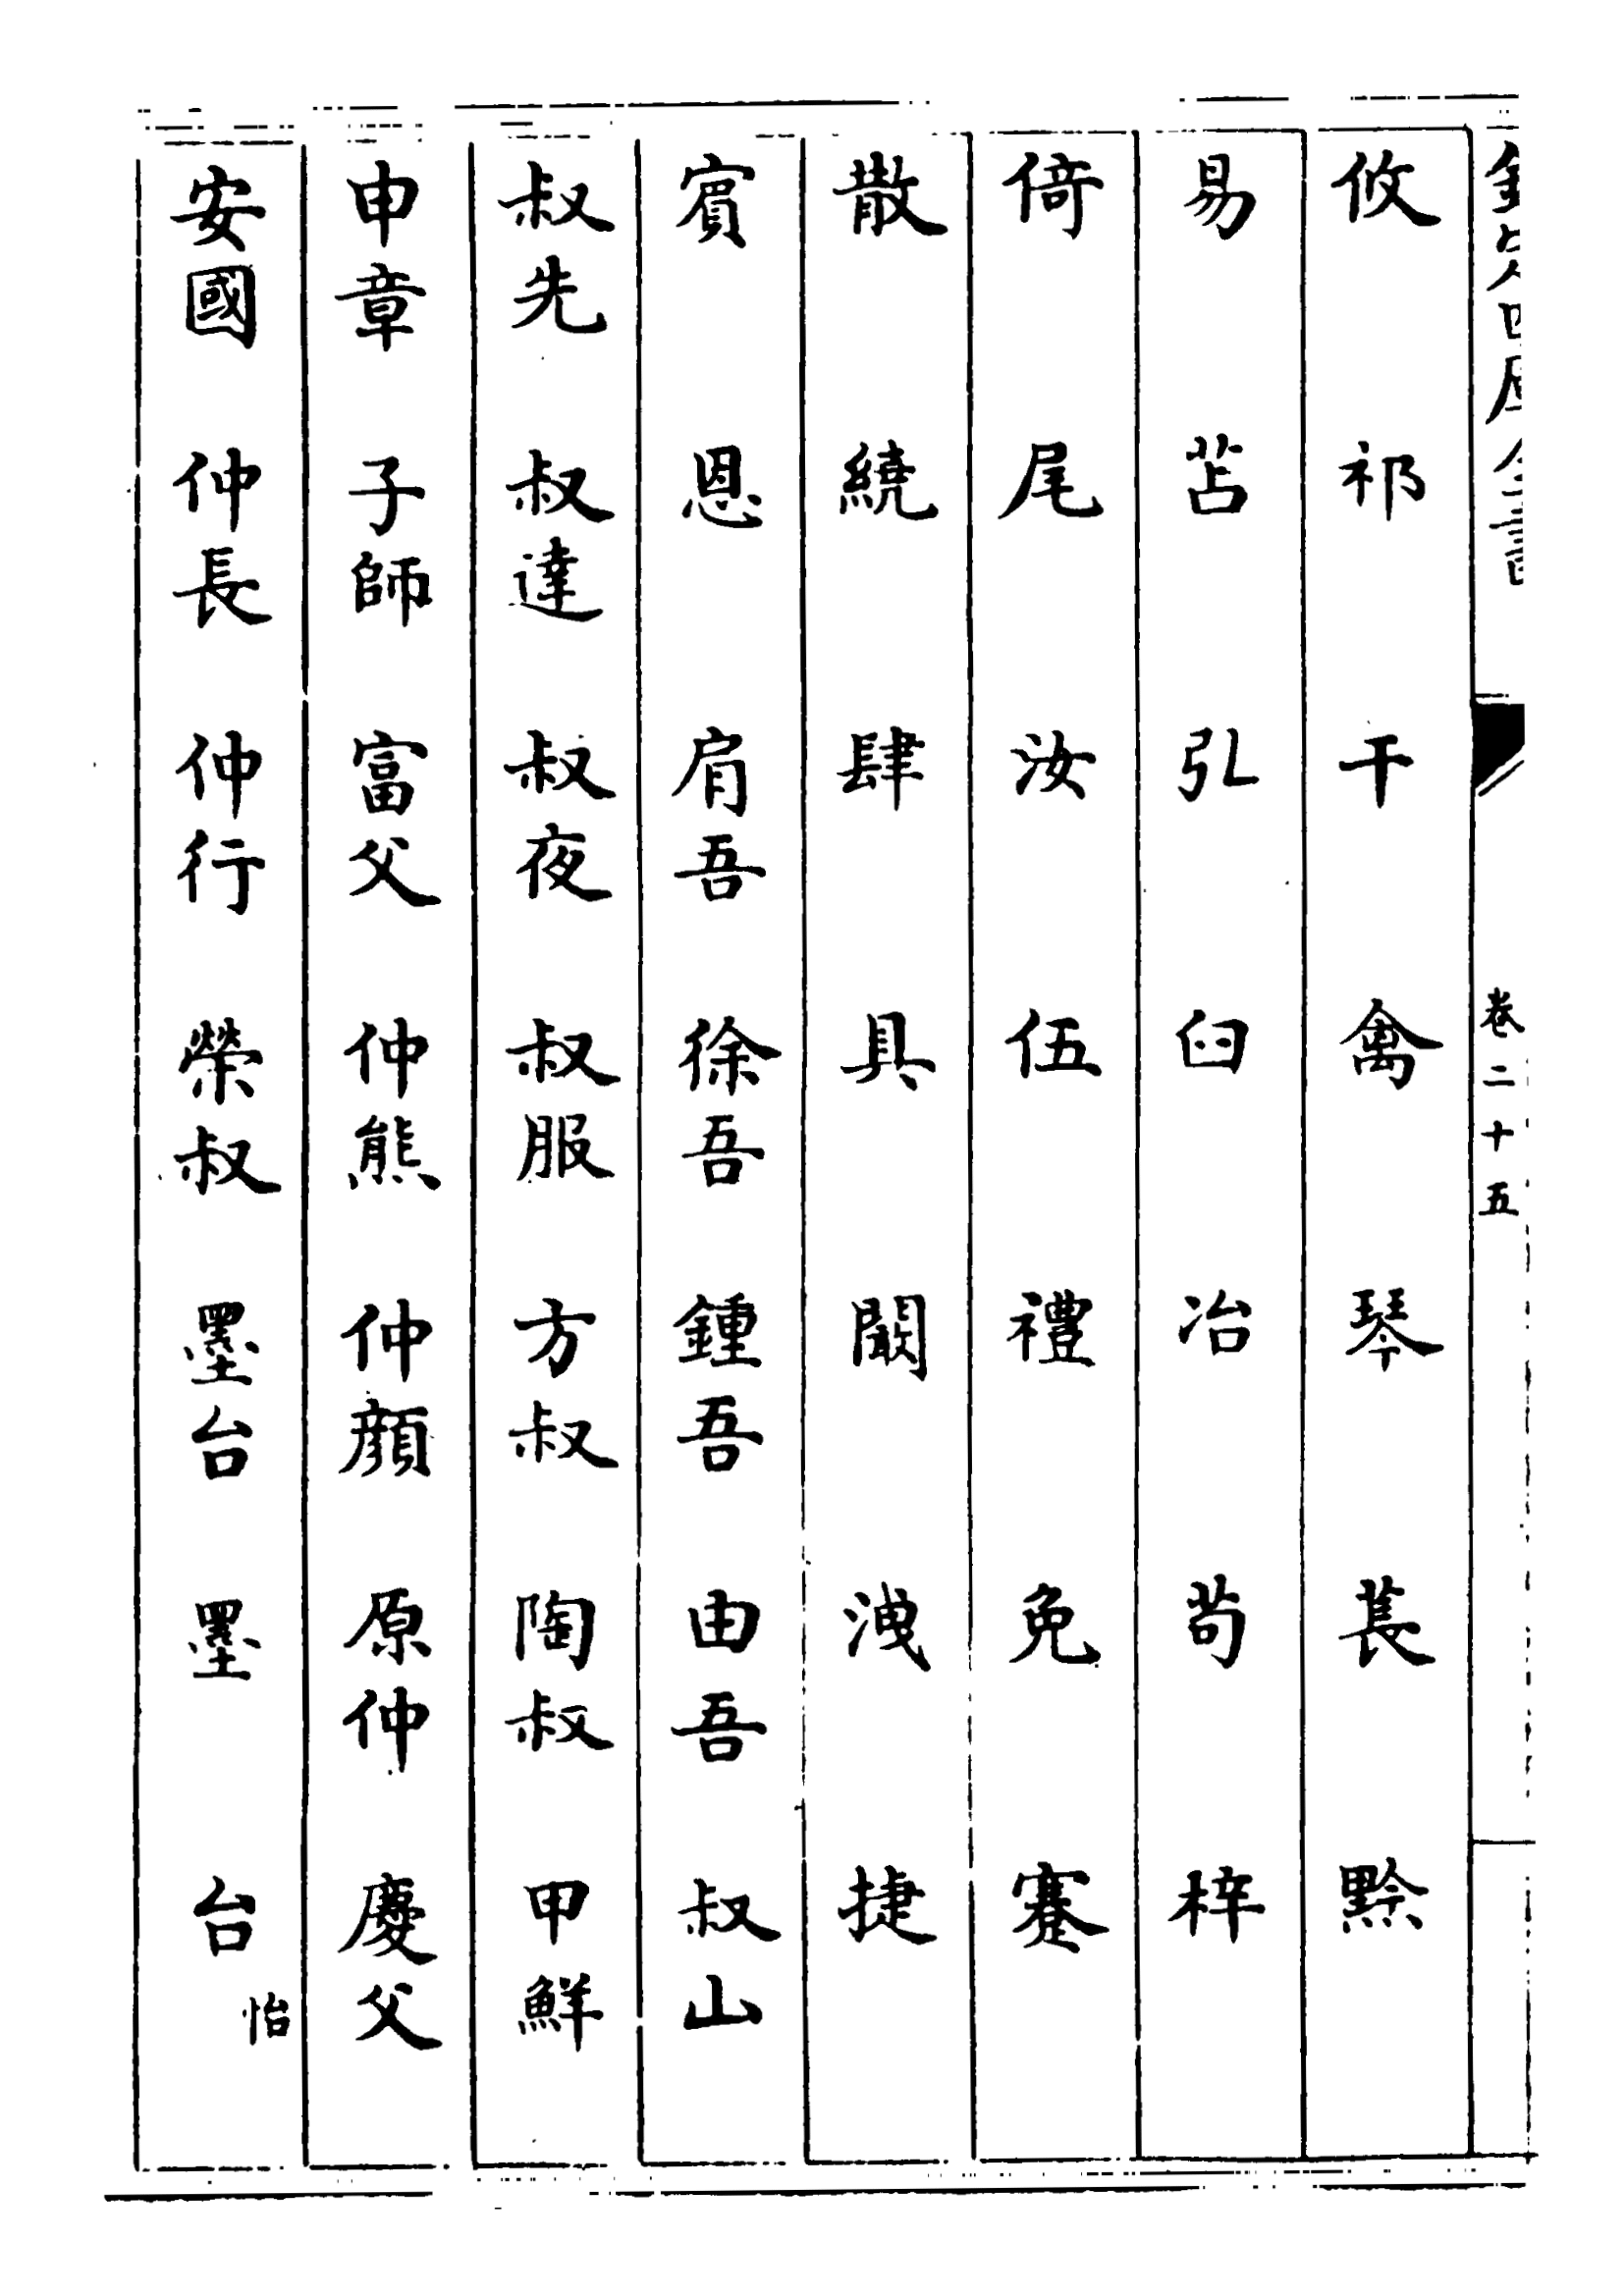 欽定四庫全書 卷二十五
攸 祁 干 禽 琴 萇 黥
易 苫 弘 臼 冶 茍 梓
倚 尾 汝 伍 禮 免 蹇
散 繞 肆 具 闞 洩 捷
賓 恩 肩吾 徐吾 鍾吾 由吾 叔山
叔先 叔達 叔夜 叔服 方叔 陶叔 甲鮮
申章 子師 富父 仲熊 仲顔 原仲 慶父
安國 仲長 仲行 榮叔 墨台 墨 台怡